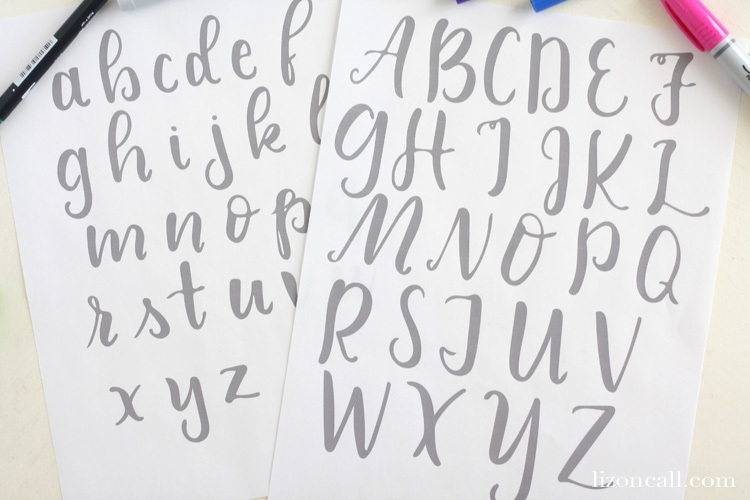 a b c d e f
g h i j k l
m n o p
r s t u v
x y z
A B C D E F
G H I J K L
M N O P Q
R S T U V
W X Y Z
lizoncall.com